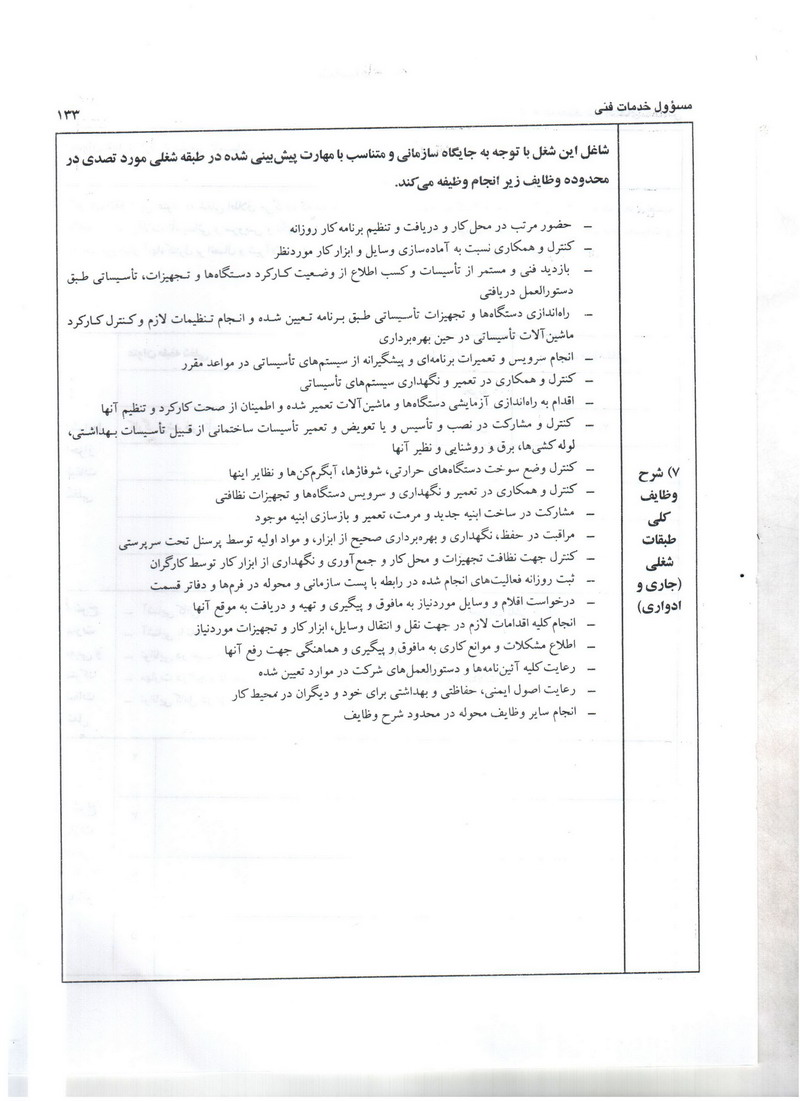 مسؤول خدمات فنی
۱۳۳
شاغل این شغل با توجه به جایگاه سازمانی و متناسب با مهارت پیش‌بینی شده در طبقه شغلی مورد تصدی در
محدوده وظایف زیر انجام وظیفه می‌کند.
– حضور مرتب در محل کار و دریافت و تنظیم برنامه کار روزانه
– کنترل و همکاری نسبت به آماده‌سازی وسایل و ابزار کار موردنظر
– بازدید فنی و مستمر از تأسیسات و کسب اطلاع از وضعیت کارکرد دستگاه‌ها و تجهیزات، تأسیساتی طبق
دستورالعمل دریافتی
– راه‌اندازی دستگاه‌ها و تجهیزات تأسیساتی طبق برنامه تعیین شده و انجام تنظیمات لازم و کنترل کارکرد
ماشین‌آلات تأسیساتی در حین بهره‌برداری
– انجام سرویس و تعمیرات برنامه‌ای و پیشگیرانه از سیستم‌های تأسیساتی در مواعد مقرر
– کنترل و همکاری در تعمیر و نگهداری سیستم‌های تأسیساتی
– اقدام به راه‌اندازی آزمایشی دستگاه‌ها و ماشین‌آلات تعمیر شده و اطمینان از صحت کارکرد و تنظیم آنها
– کنترل و مشارکت در نصب و تأسیس و یا تعویض و تعمیر تأسیسات ساختمانی از قبیل تأسیسات بهداشتی،
لوله کشی‌ها، برق و روشنایی و نظیر آنها
– کنترل وضع سوخت دستگاه‌های حرارتی، شوفاژها، آبگرم‌کن‌ها و نظایر اینها
– کنترل و همکاری در تعمیر و نگهداری و سرویس دستگاه‌ها و تجهیزات نظافتی
– مشارکت در ساخت ابنیه جدید و مرمت، تعمیر و بازسازی ابنیه موجود
– مراقبت در حفظ، نگهداری و بهره‌برداری صحیح از ابزار، و مواد اولیه توسط پرسنل تحت سرپرستی
– کنترل جهت نظافت تجهیزات و محل کار و جمع‌آوری و نگهداری از ابزار کار توسط کارگران
– ثبت روزانه فعالیت‌های انجام شده در رابطه با پست سازمانی و محوله در فرم‌ها و دفاتر قسمت
– درخواست اقلام و وسایل موردنیاز به مافوق و پیگیری و تهیه و دریافت به موقع آنها
– انجام کلیه اقدامات لازم در جهت نقل و انتقال وسایل، ابزار کار و تجهیزات موردنیاز
– اطلاع مشکلات و موانع کاری به مافوق و پیگیری و هماهنگی جهت رفع آنها
– رعایت کلیه آئین‌نامه‌ها و دستورالعمل‌های شرکت در موارد تعیین شده
– رعایت اصول ایمنی، حفاظتی و بهداشتی برای خود و دیگران در محیط کار
– انجام سایر وظایف محوله در محدود شرح وظایف
۷) شرح
وظایف
کلی
طبقات
شغلی
(جاری و
ادواری)